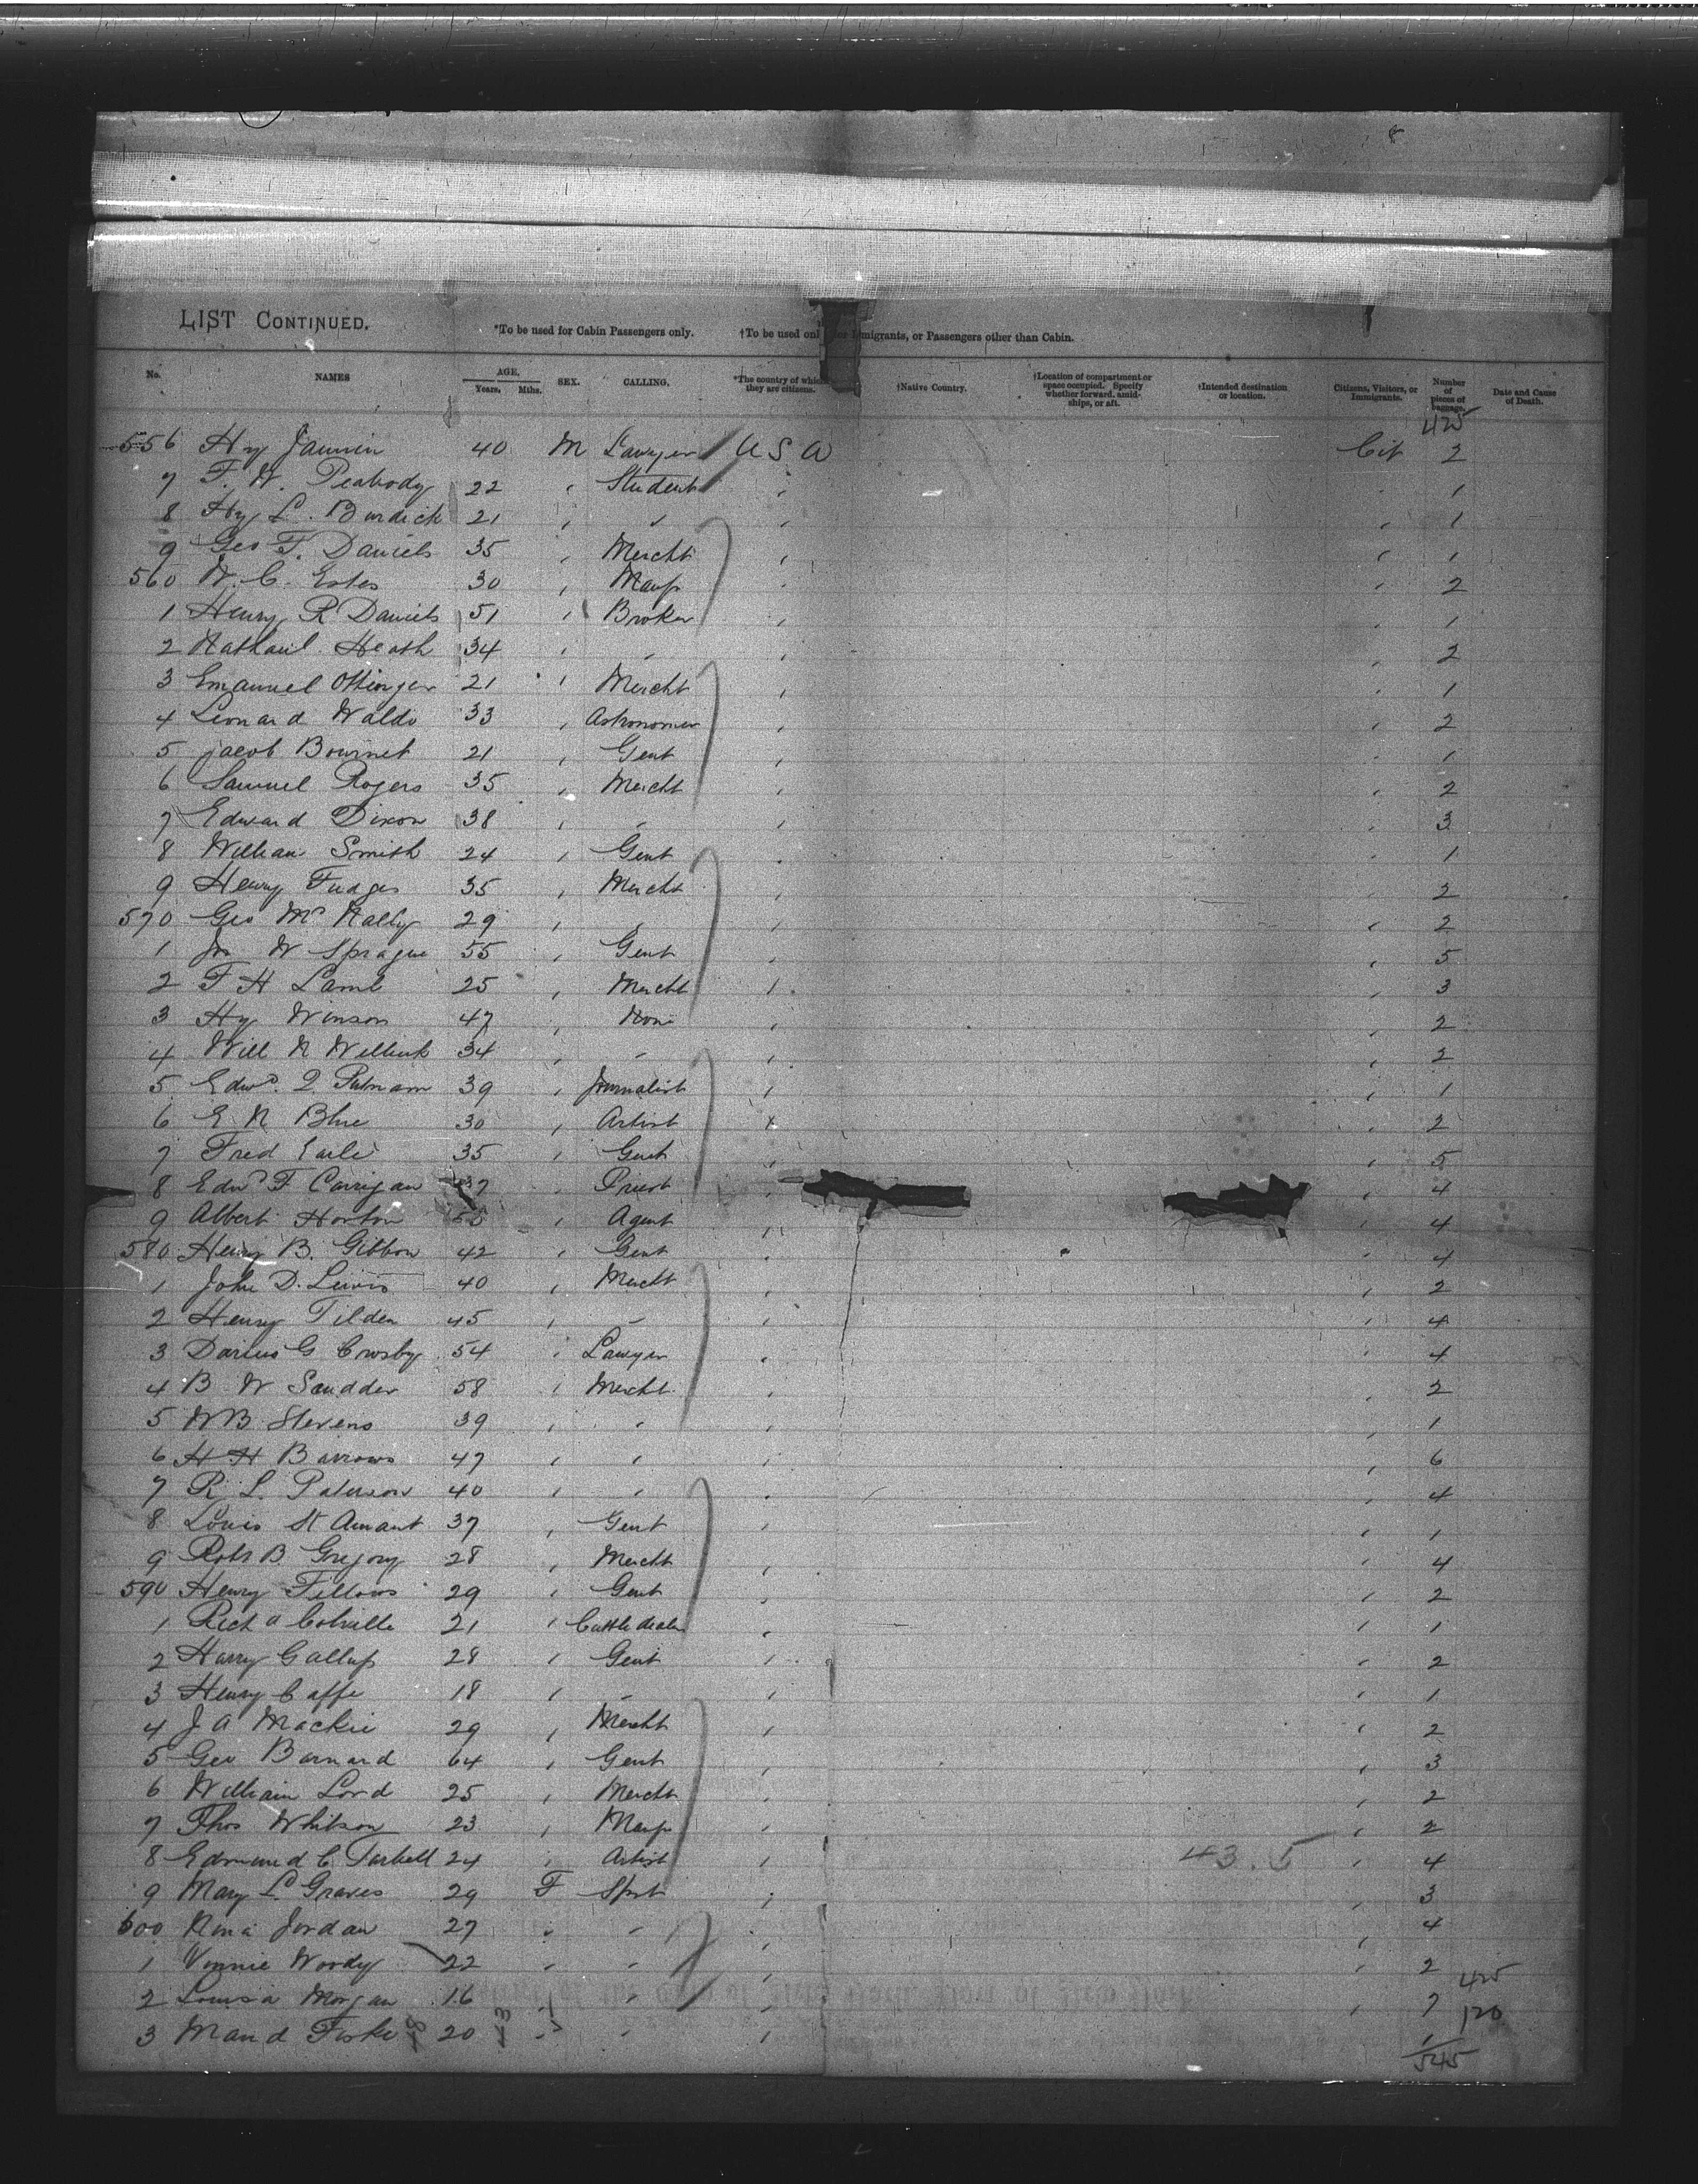 LIST CONTINUED.
*To be used for Cabin Passengers only. †To be used only for Immigrants, or Passengers other than Cabin.
No. NAMES AGE. Years. Mths. SEX. CALLING. *The country of which they are citizens. †Native Country. †Location of compartment or space occupied. Specify whether forward, amidships, or aft. †Intended destination or location. Citizens, Visitors, or Immigrants. Number of pieces of baggage. Date and Cause of Death.
425
556 Hy Jannin 40 M Lawyer U S A Cit 2
7 F. W. Peabody 22 " Student " " 1
8 Hy L. Burdick 21 " " " " 1
9 Geo F. Daniels 35 " Mercht " " 1
560 W. C. Estes 30 " Manfr " " 2
1 Henry R Daniels 51 " Broker " " 1
2 Nathanl Heath 34 " " " " 2
3 Emanuel Ottinger 21 " Mercht " " 1
4 Leonard Waldo 33 " Astronomer " " 2
5 Jacob Bournet 21 " Gent " " 1
6 Samuel Rogers 35 " Mercht " " 2
7 Edward Dixon 38 " " " " 3
8 William Smith 24 " Gent " " 1
9 Henry Fudger 35 " Mercht " " 2
570 Geo McNally 29 " " " " 2
1 Jno W Sprague 55 " Gent " " 5
2 F H Lamb 25 " Mercht " " 3
3 Hy Winson 47 " None " " 2
4 Will N Wilbunk 34 " " " " 2
5 Edwd. Q Putnam 39 " Journalist " " 1
6 E N Blue 30 " Artist " " 2
7 Fred Earle 35 " Gent " " 5
8 Edwd F Corrigan 37 " Priest " " 4
9 Albert Horton 55 " Agent " " 4
580 Henry B. Gibbon 42 " Gent " " 4
1 John D. Lewis 40 " Mercht " " 2
2 Henry Tilden 45 " " " " 4
3 Darius G Crosby 54 " Lawyer " " 4
4 B W Scudder 58 " Mercht " " 2
5 W B Stevens 39 " " " " 1
6 H H Barrows 47 " " " " 6
7 R. L. Paterson 40 " " " " 4
8 Louis St Amant 37 " Gent " " 1
9 Robt B Gregory 28 " Mercht " " 4
590 Henry Fellows 29 " Gent " " 2
1 Rich a Colville 21 " Cattle dealer " " 1
2 Harry Gallup 28 " Gent " " 2
3 Henry Caffe 18 " " " " 1
4 J A Mackie 29 " Mercht " " 2
5 Geo Barnard 64 " Gent " " 3
6 William Lord 25 " Mercht " " 2
7 Thos Whitson 23 " Manfr " " 2
8 Edmund C Tarbell 24 " Artist " 43.5 " 4
9 Mary L Graves 29 F Spst " " 3
600 Nina Jordan 27 " " " " 4
1 Vonnie Woody 22 " " " " 2
425
2 Louisa Morgan 16 " " " " 7
120
3 Maud Fiske 20 " " " 1
545